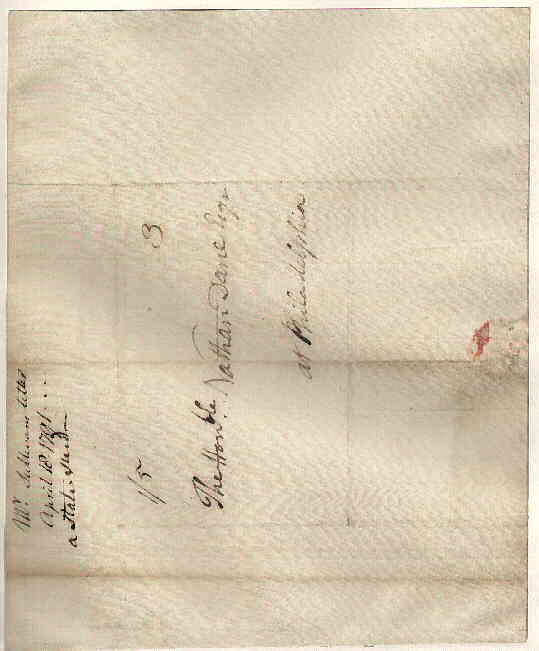 The Honble. Nathan Dane Esqr
at Philadelphia
3
1/5
Mr Sullivans letter
April 18 1791
a State